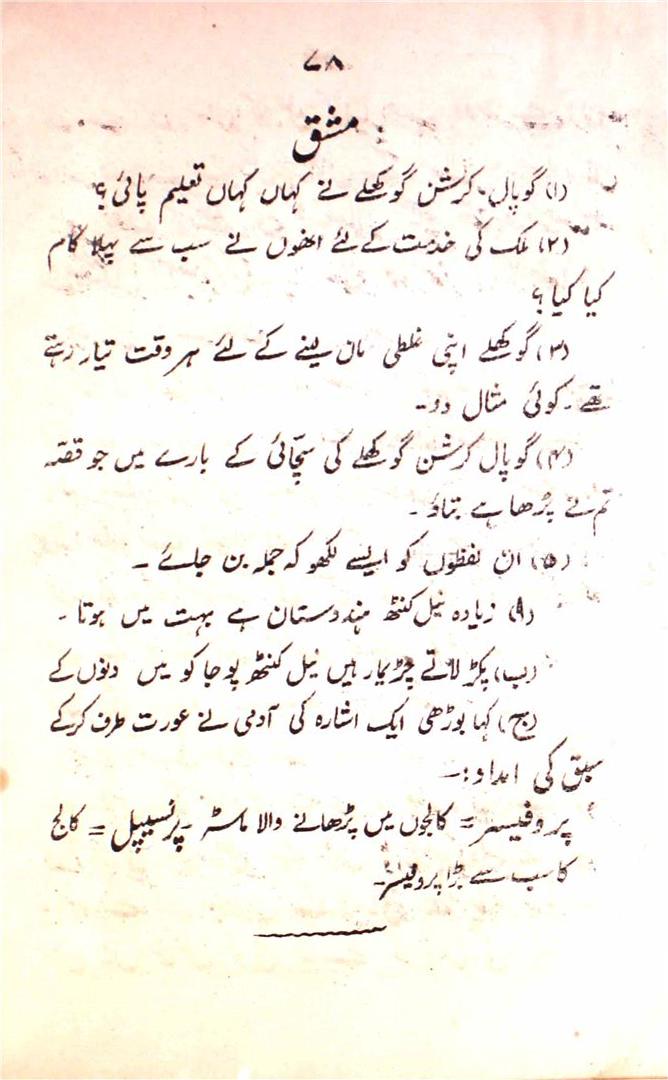 ۷۸
مشق
(۱) گوپال کرشن گوکھلے نے کہاں کہاں تعلیم پائی؟
(۲) ملک کی خدمت کے لئے انھوں نے سب سے پہلا کام
کیا کیا؟
(۳) گوکھلے اپنی غلطی مان لینے کے لئے ہر وقت تیار رہتے
تھے۔ کوئی مثال دو۔
(۴) گوپال کرشن گوکھلے کی سچّائی کے بارے میں جو قصّہ
تم نے پڑھا ہے بتاؤ۔
(۵) ان لفظوں کو ایسے لکھو کہ جملہ بن جائے۔
(۱) زیادہ نیل کنٹھ ہندوستان ہے بہت میں ہوتا۔
(ب) پکڑ لاتے چڑیمار ہیں نیل کنٹھ پوجا کو میں دنوں کے
(ج) کہا بوڑھی ایک اشارہ کی آدمی نے عورت طرف کرکے
سبق کی امداد:۔
پروفیسر = کالجوں میں پڑھانے والا ماسٹر۔ پرنسیپل = کالج
کا سب سے بڑا پروفیسر۔